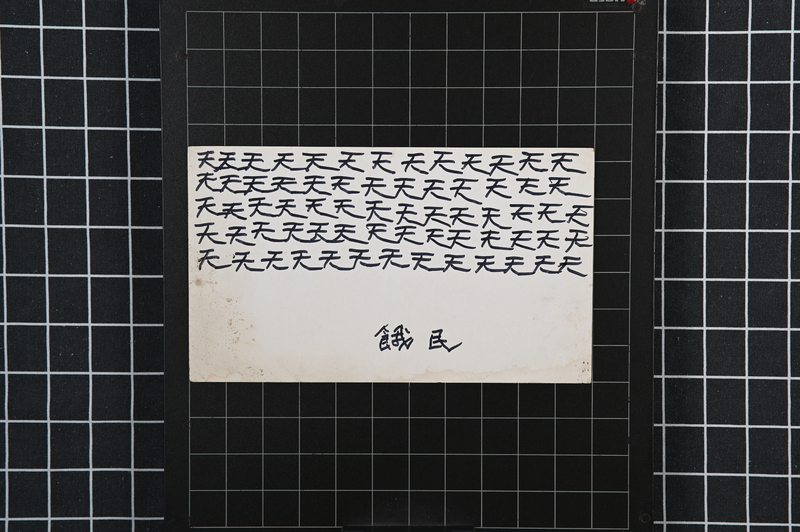 天天天天天天天天天天天天天天
天天天天天天天天天天天天天天
天天天天天天天天天天天天天天
天天天天天天天天天天天天天天
天天天天天天天天天天天天天
餓民